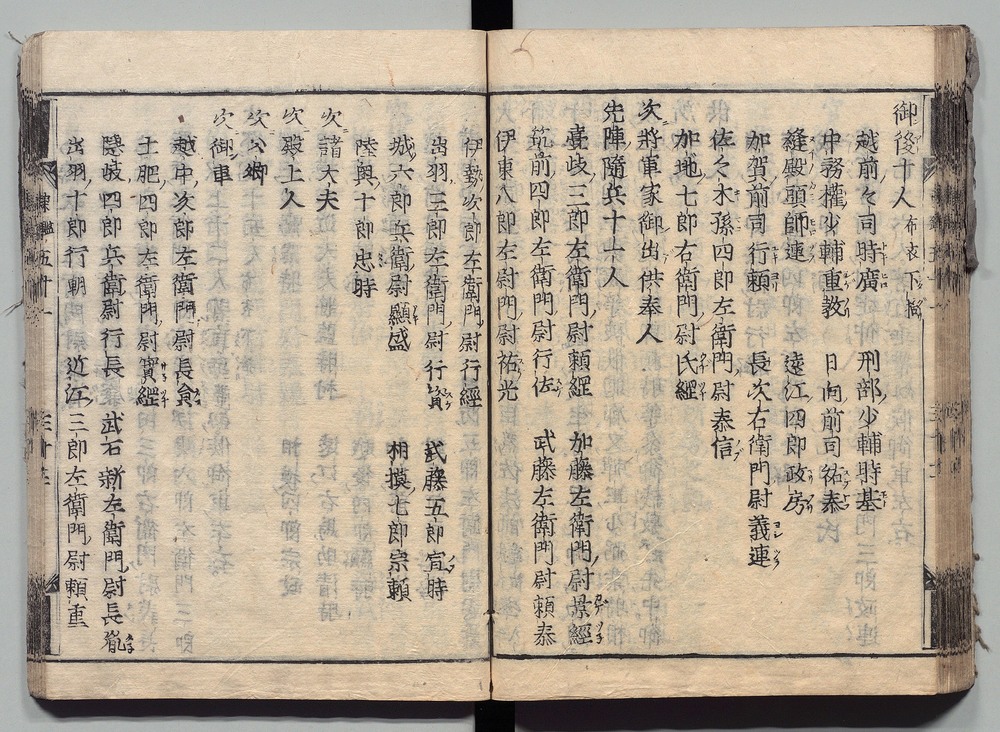 御後十人 布衣下括
越前々司時廣 刑部少輔時基
中務權少輔重教 日向前司祐泰
縫殿頭師連 遠江四郎政房
加賀前司行頼 長次右衛門尉義連
佐々木孫四郎左衛門尉泰信
加地七郎右衛門尉氏經
次將軍家御出供奉人
先陣隨兵十十人
壹岐三郎左衛門尉頼經 加藤左衛門尉景經
筑前四郎左衛門尉行佐 武藤左衛門尉頼泰
伊東八郎左尉門尉祐光
伊勢次郎左衛門尉行經
出羽三郎左衛門尉行資 武藤五郎宜時
城六郎兵衛尉顯盛 相摸七郎宗頼
陸奥十郎忠時
次諸大夫
次殿上人
次公卿
次御車
越中次郎左衛門尉長貟
土肥四郎左衛門尉實經
隠岐四郎兵衛尉行長 武石新左衛門尉長胤
出羽十郎行朝 近江三郎左衛門尉頼重